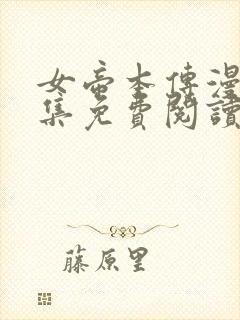 女帝本傳漫
集免費閱讀
藤原里